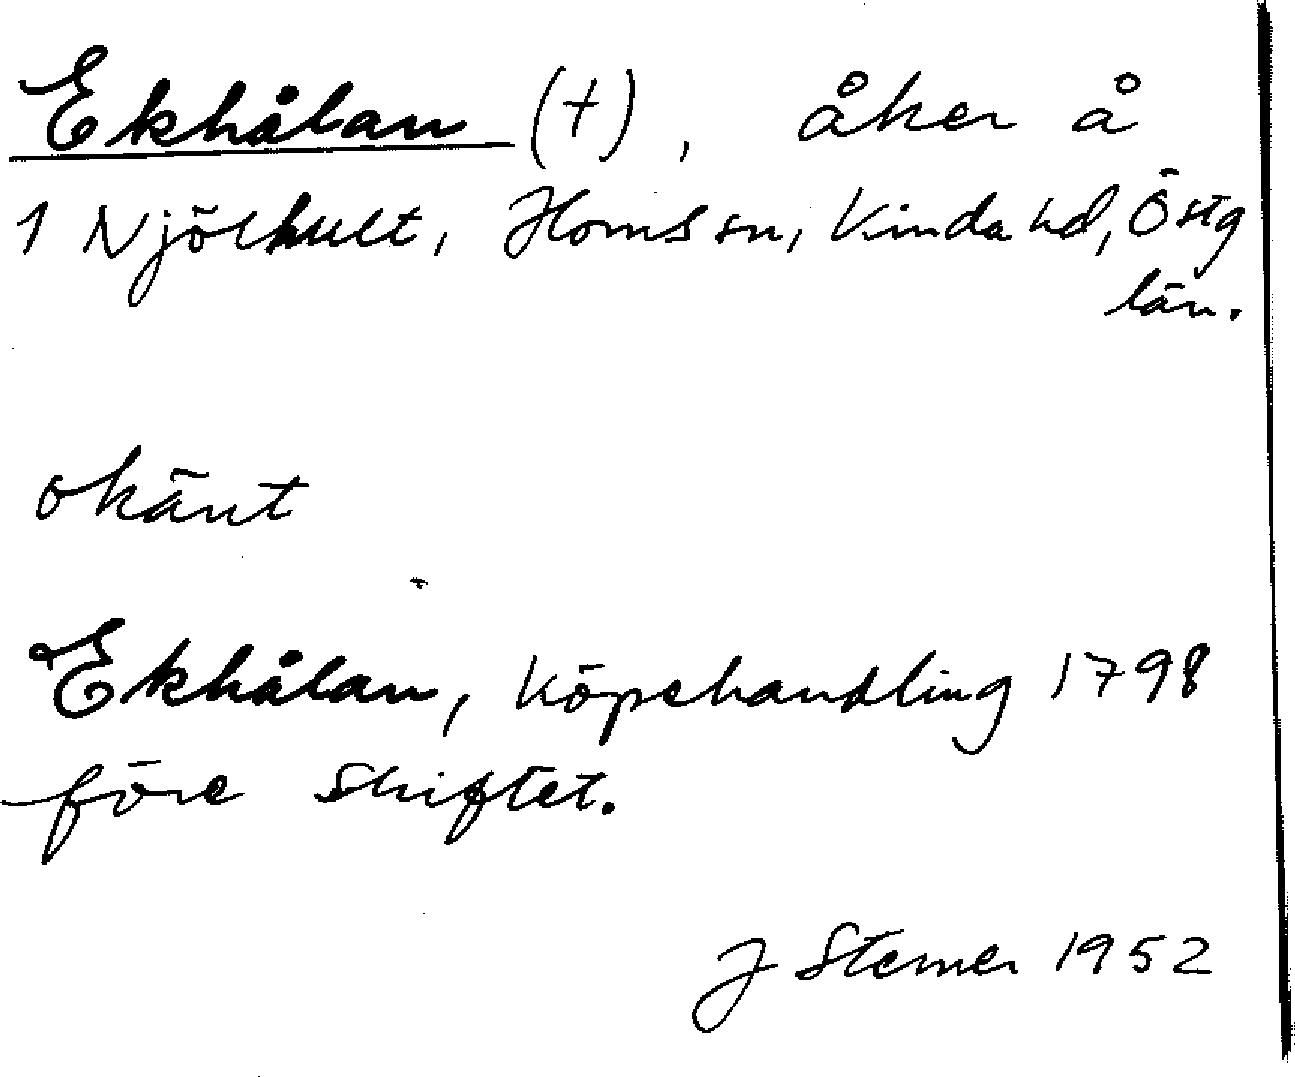 Ekhålan (+), åker å
1 Njölhult, Horns sn, Kinda hd, Östg
län.
okänt
Ekhålan, Köpehandling 1798
före skiftet.
J Sterner 1952